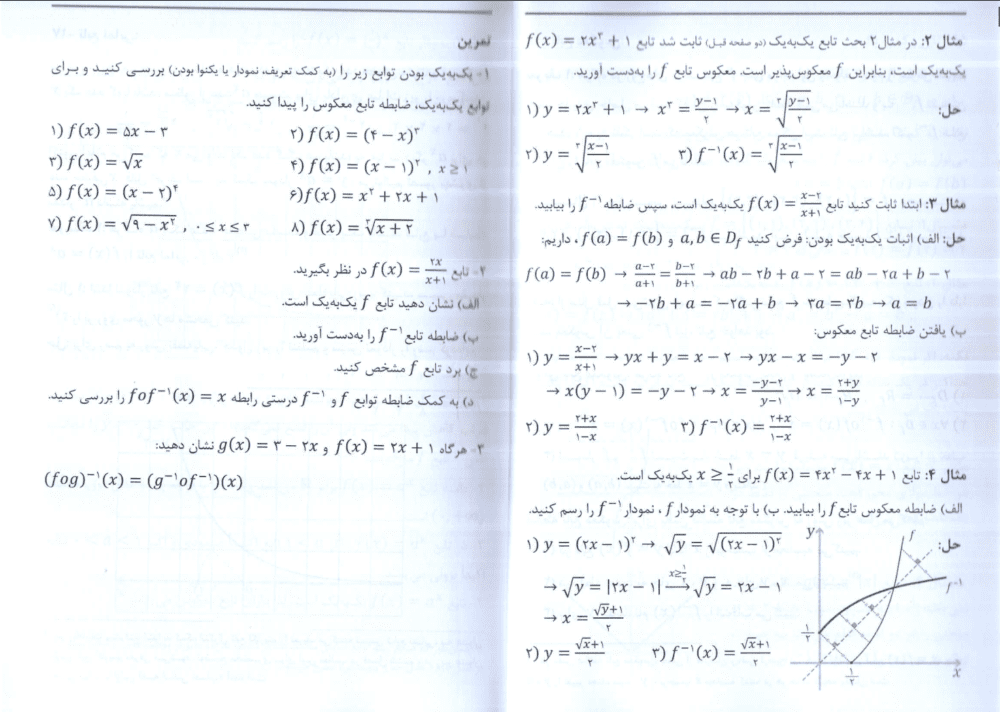 مثال ۲: در مثال ۲ بحث تابع یک‌به‌یک (دو صفحه قبل) ثابت شد تابع f(x) = ۲x³ + ۱
یک‌به‌یک است، بنابراین f معکوس‌پذیر است. معکوس تابع f را به‌دست آورید.
حل: ۱) y = ۲x³ + ۱ → x³ = (y−۱)/۲ → x = ∛((y−۱)/۲)
۲) y = ∛((x−۱)/۲) ۳) f⁻¹(x) = ∛((x−۱)/۲)
مثال ۳: ابتدا ثابت کنید تابع f(x) = (x−۲)/(x+۱) یک‌به‌یک است، سپس ضابطه f⁻¹ را بیابید.
حل: الف) اثبات یک‌به‌یک بودن: فرض کنید a, b ∈ D_f و f(a) = f(b)، داریم:
f(a) = f(b) → (a−۲)/(a+۱) = (b−۲)/(b+۱) → ab − ۲b + a − ۲ = ab − ۲a + b − ۲
→ −۲b + a = −۲a + b → ۳a = ۳b → a = b
ب) یافتن ضابطه تابع معکوس:
۱) y = (x−۲)/(x+۱) → yx + y = x − ۲ → yx − x = −y − ۲
→ x(y − ۱) = −y − ۲ → x = (−y−۲)/(y−۱) → x = (۲+y)/(۱−y)
۲) y = (۲+x)/(۱−x) ۳) f⁻¹(x) = (۲+x)/(۱−x)
مثال ۴: تابع f(x) = ۴x² − ۴x + ۱ برای x ≥ ۱/۲ یک‌به‌یک است.
الف) ضابطه معکوس تابع f را بیابید. ب) با توجه به نمودار f، نمودار f⁻¹ را رسم کنید.
حل: ۱) y = (۲x − ۱)² → √y = √((۲x − ۱)²)
→ √y = |۲x − ۱| —x≥۱/۲→ √y = ۲x − ۱
→ x = (√y+۱)/۲
۲) y = (√x+۱)/۲ ۳) f⁻¹(x) = (√x+۱)/۲
y
f
f⁻¹
۱/۲
۱/۲
x
تمرین
۱- یک‌به‌یک بودن توابع زیر را (به کمک تعریف، نمودار یا یکنوا بودن) بررسی کنید و برای
توابع یک‌به‌یک، ضابطه تابع معکوس را پیدا کنید.
۱) f(x) = ۵x − ۳ ۲) f(x) = (۴ − x)³
۳) f(x) = √x ۴) f(x) = (x − ۱)² , x ≥ ۱
۵) f(x) = (x − ۲)⁴ ۶) f(x) = x² + ۲x + ۱
۷) f(x) = √(۹ − x²) , ۰ ≤ x ≤ ۳ ۸) f(x) = ∛(x + ۲)
۲- تابع f(x) = ۲x/(x+۱) در نظر بگیرید.
الف) نشان دهید تابع f یک‌به‌یک است.
ب) ضابطه تابع f⁻¹ را به‌دست آورید.
ج) برد تابع f مشخص کنید.
د) به کمک ضابطه توابع f و f⁻¹ درستی رابطه fof⁻¹(x) = x را بررسی کنید.
۳- هرگاه f(x) = ۲x + ۱ و g(x) = ۳ − ۲x نشان دهید:
(fog)⁻¹(x) = (g⁻¹of⁻¹)(x)